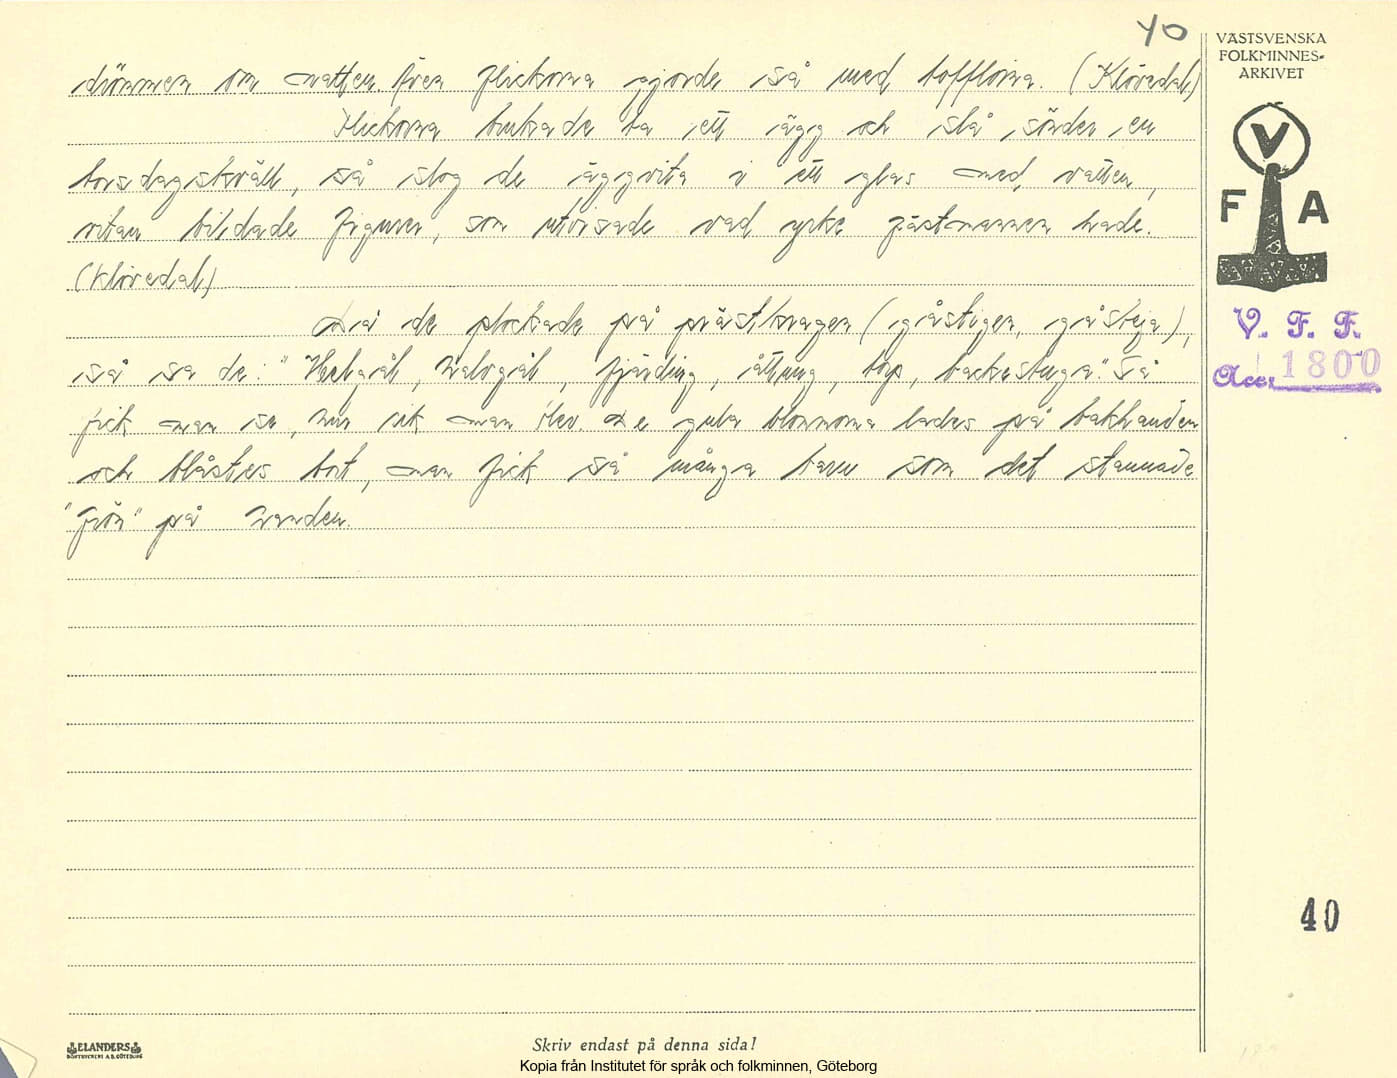 40
VÄSTSVENSKA
FOLKMINNES-
ARKIVET
V
F A
V. F. F.
Acc. 1800
drömmen om natten. Även flickorna gjorde så med tofflorna. (Klövedal)
Flickorna brukade ta ett ägg och slå sönder en
torsdagskväll, så slog de äggvita i ett glas med vatten,
vitan bildade figurer, som utvisade vad yrke fästmannen hade.
(Klövedal)
Då de plockade på prästkragen (gåstigen, gåsteja),
så sa de: "Helgål, halvgål, fjärding, åttung, torp, backestuga." Så
fick man se, hur rik man blev. De gula blommorna lades på bakhanden
och blåstes bort, man fick så många barn som det stannade
"frön" på handen.
ELANDERS
BOKTRYCKERI A.B. GÖTEBORG
Skriv endast på denna sida!
40
Kopia från Institutet för språk och folkminnen, Göteborg